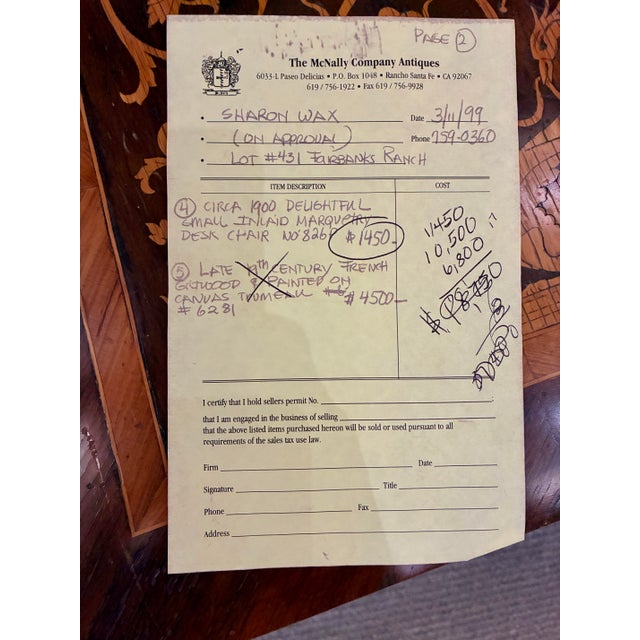 PAGE 2
The McNally Company Antiques
6033-L Paseo Delicias • P.O. Box 1048 • Rancho Santa Fe • CA 92067
619 / 756-1922 • Fax 619 / 756-9928
• SHARON WAX Date 3/11/99
• (ON APPROVAL) Phone 759-0360
• LOT #431 FAIRBANKS RANCH
ITEM DESCRIPTION COST
4 CIRCA 1900 DELIGHTFUL
SMALL INLAID MARQUETRY
DESK CHAIR NO 8268 $1450-
5 LATE 19th CENTURY FRENCH
GILTWOOD & PAINTED ON
CANVAS TRUMEAU $4500-
# 6281
1450
10,500
6,800
I certify that I hold sellers permit No. ;
that I am engaged in the business of selling
that the above listed items purchased hereon will be sold or used pursuant to all
requirements of the sales tax use law.
Firm Date
Signature Title
Phone Fax
Address